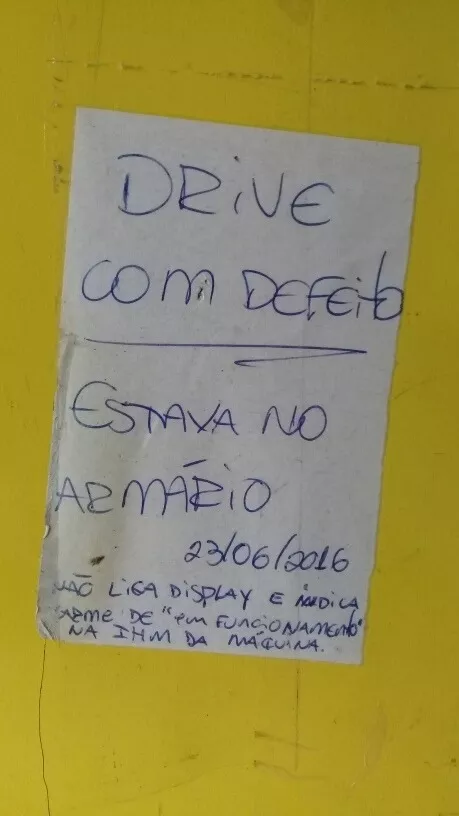 DRIVE
COM DEFEITO
ESTAVA NO
ARMÁRIO
23/06/2016
NÃO LIGA DISPLAY E INDICA
ALARME DE "EM FUNCIONAMENTO"
NA IHM DA MÁQUINA.